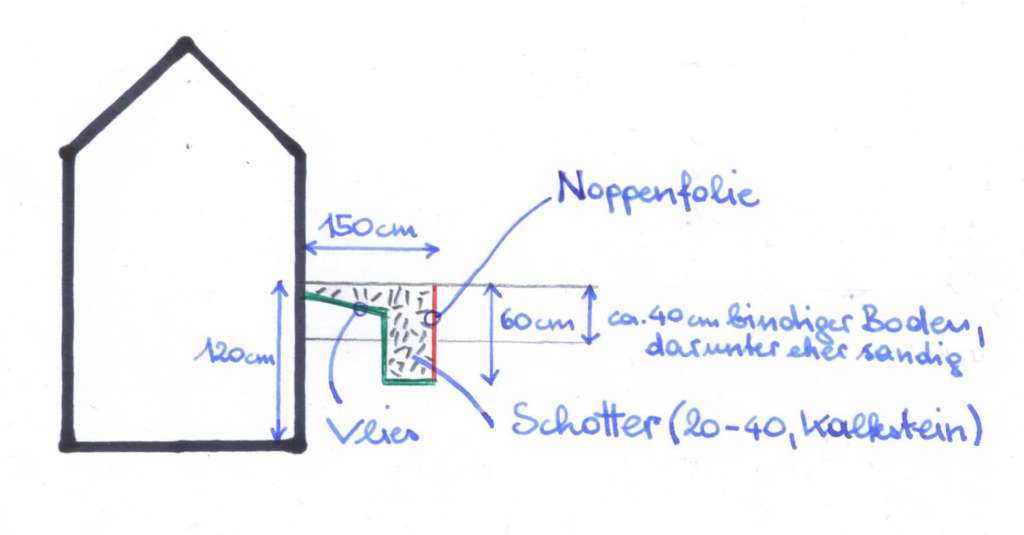 Noppenfolie
150cm
60cm
ca. 40cm bindiger Boden,
darunter eher sandig
120cm
Vlies
Schotter (20-40, Kalkstein)